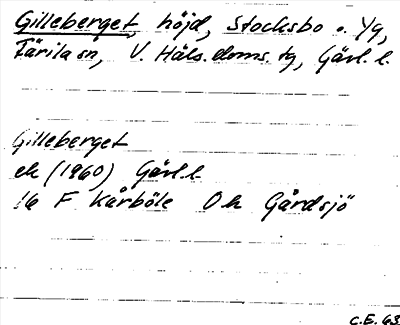 Gilleberget, höjd, Stocksbo o. Yg,
Färila sn, V. Häls. doms. tg, Gävl. l.
Gilleberget
ek (1960) Gävl. l.
16 F Kårböle O k Gårdsjö
C.E. 63